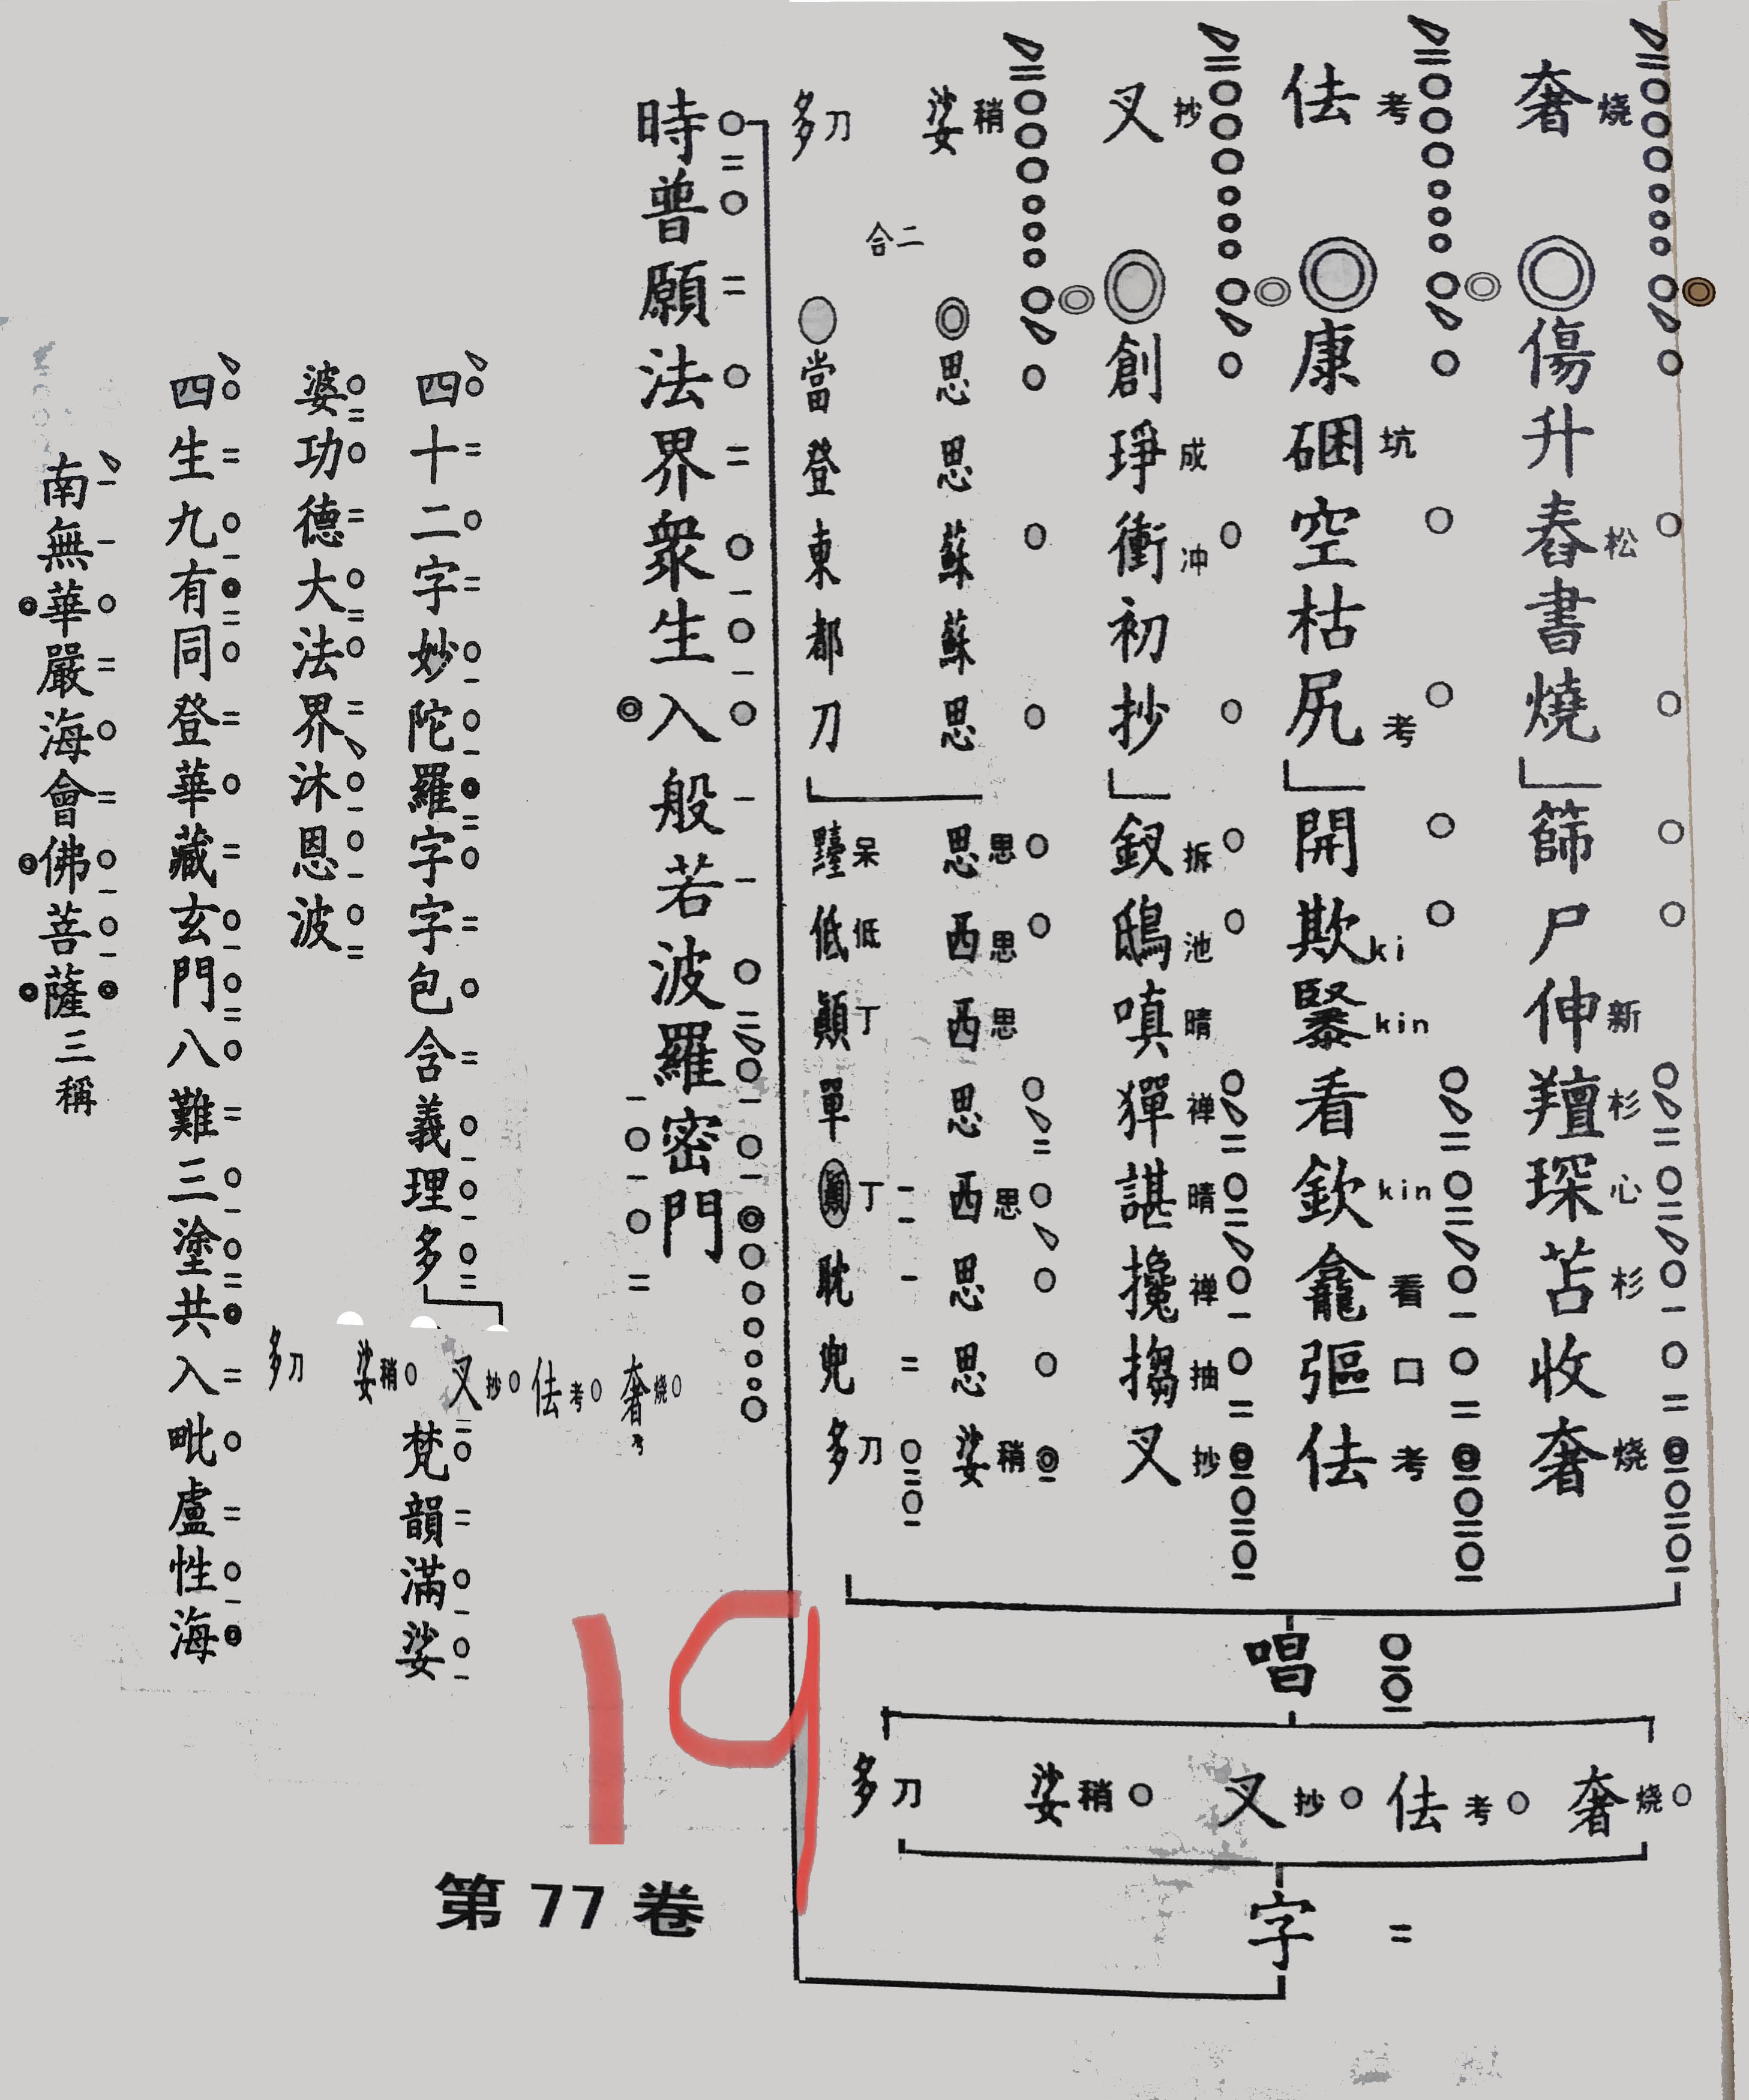 奢燒傷升舂松書燒篩尸伸新羶杉琛心苫杉收奢燒
佉考康硱坑空枯尻考開欺ki緊kin看欽kin龕看彄口佉考
叉抄創琤成衝冲初抄釵拆鴟池嗔晴獮禅諶晴攙禅搊抽叉抄
娑稍思思蘇蘇思思思西思西思思西思思思娑稍
二合
多刀當登東都刀䶴呆低低顛丁單顛丁耽兜多刀
唱
奢燒佉考叉抄娑稍多刀
字
時普願法界眾生入般若波羅密門
四十二字妙陀羅字字包含義理多
奢燒佉考叉抄娑稍多刀
梵韻滿娑
婆功德大法界沐恩波
四生九有同登華藏玄門八難三塗共入毗盧性海
南無華嚴海會佛菩薩三稱
19
第77卷